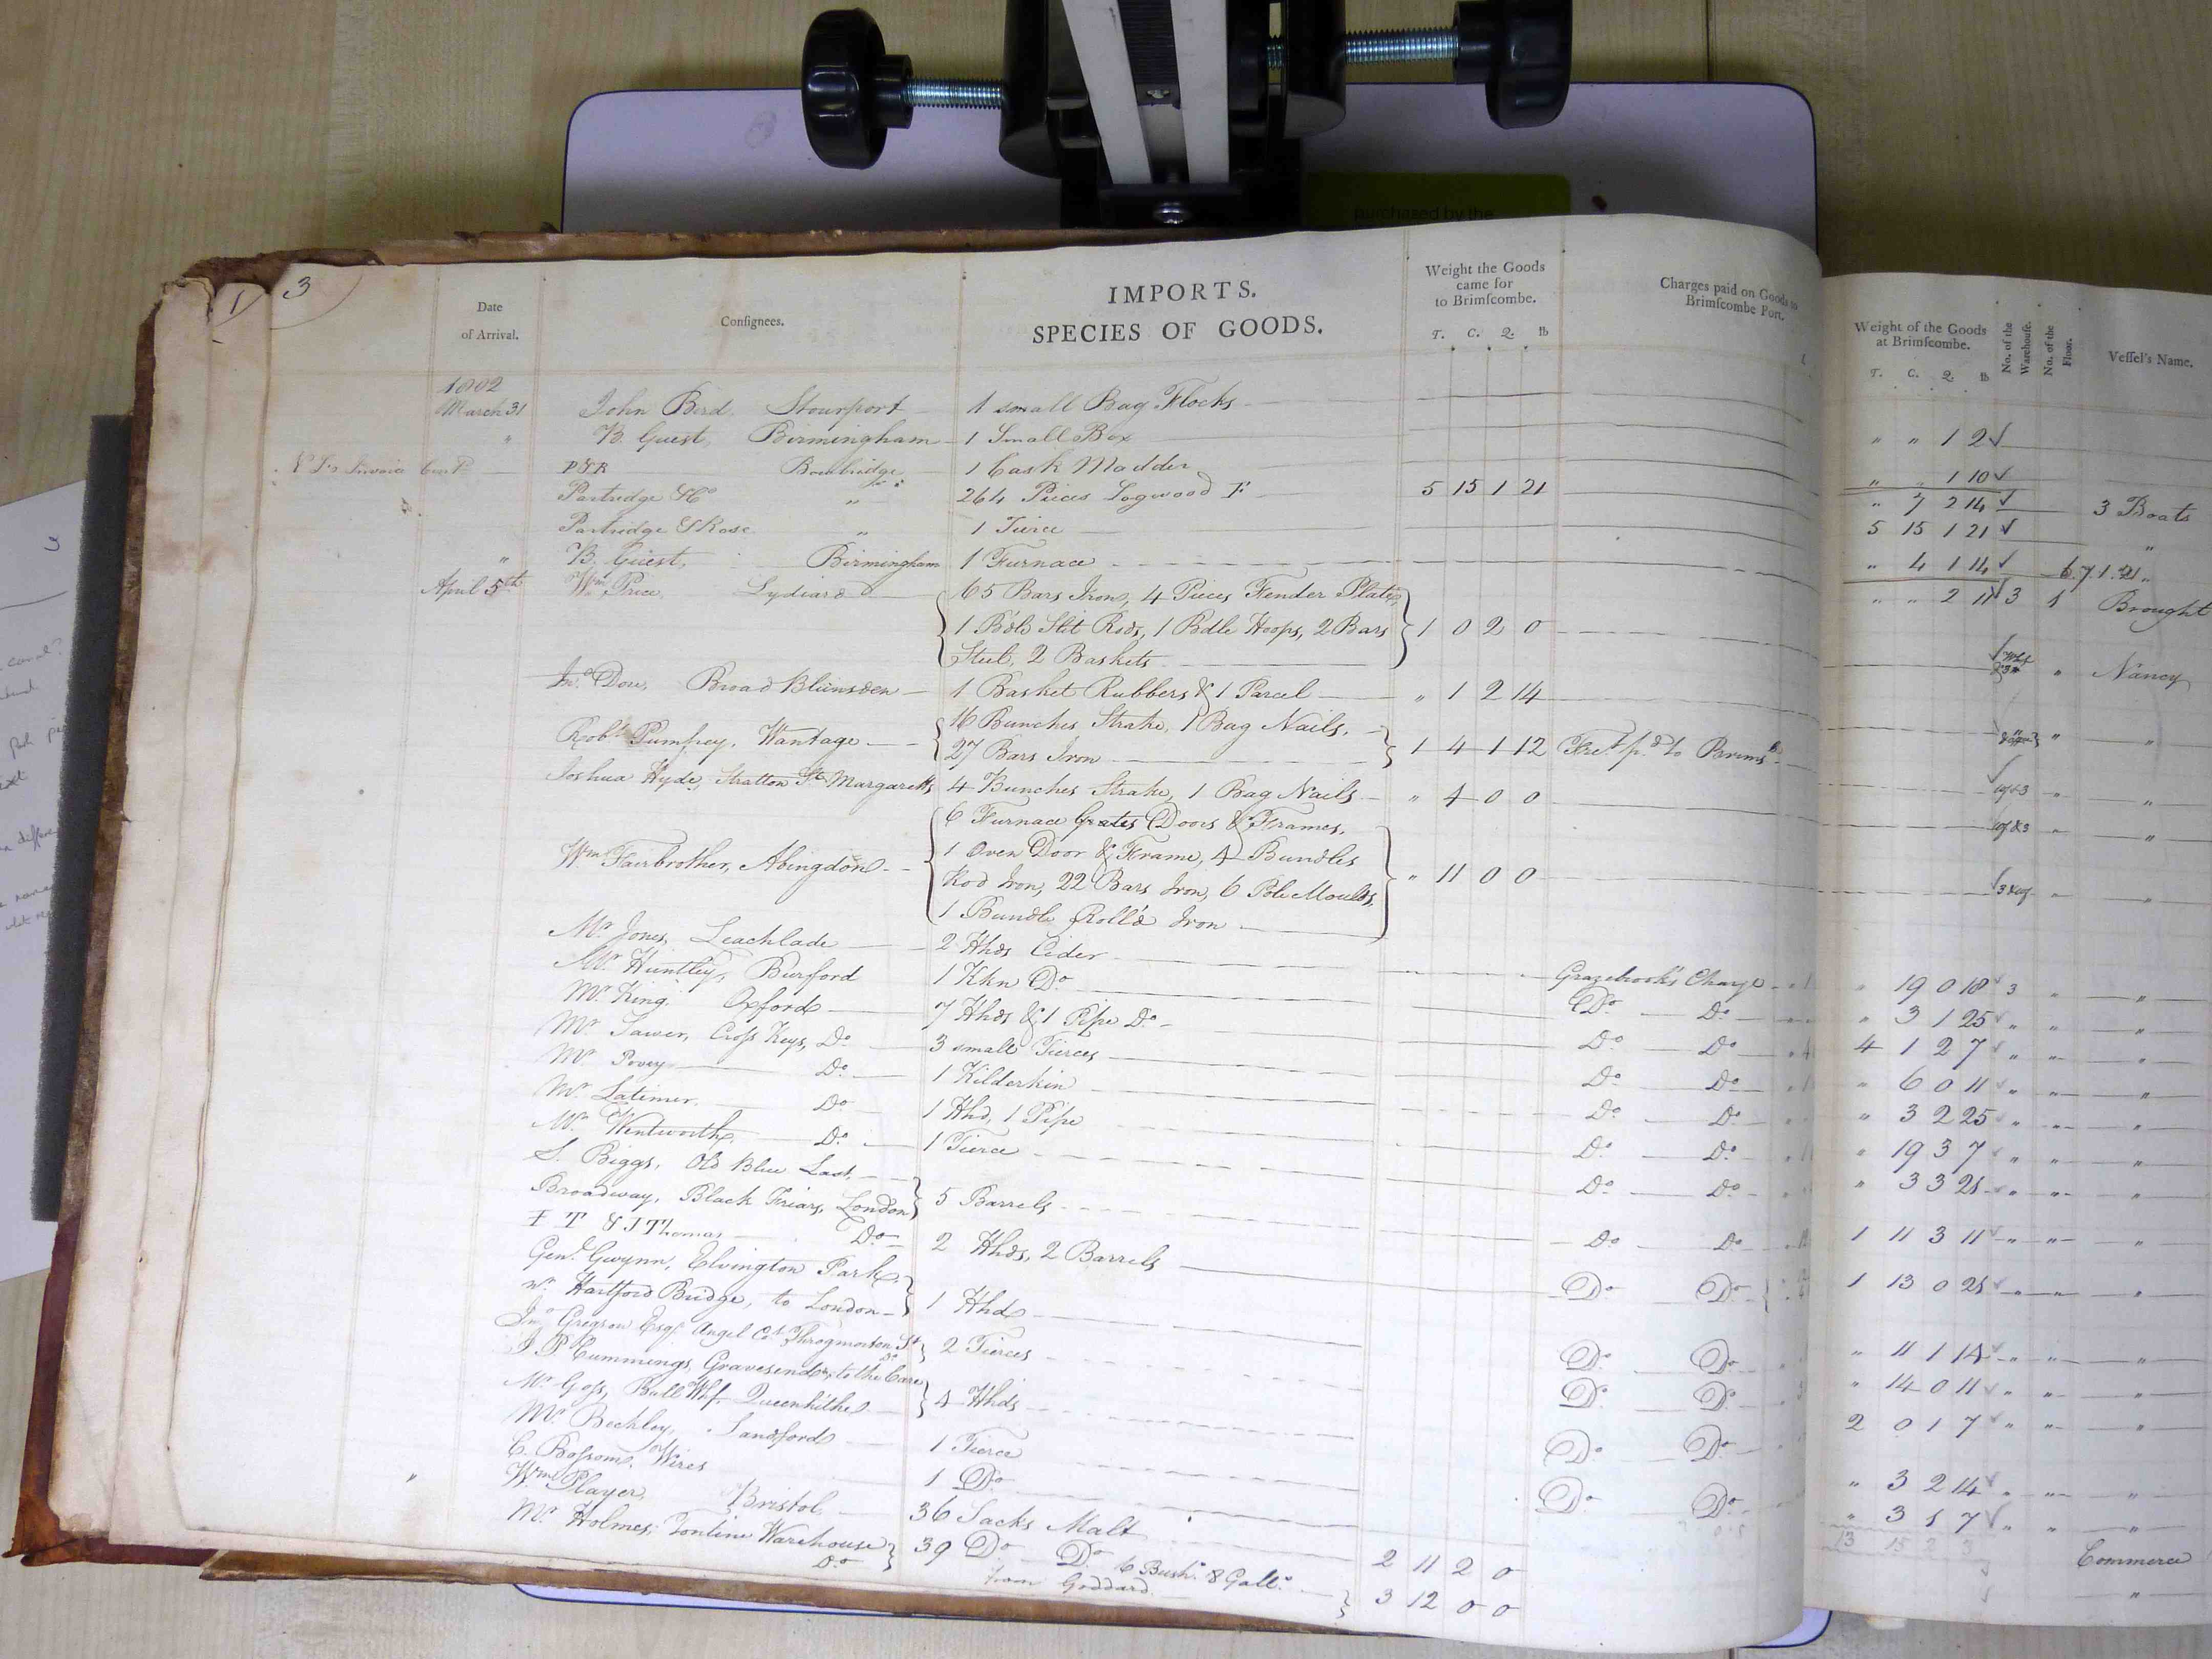 purchased by the
1 3
Date of Arrival.
Consignees.
IMPORTS.
SPECIES OF GOODS.
Weight the Goods came for to Brimscombe.
T. C. Q. lb
Charges paid on Goods to Brimscombe Port.
Weight of the Goods at Brimscombe.
T. C. Q. lb
No. of the Warehouse.
No. of the Floor.
Vessel's Name.
1802
March 31 John Bird. Stourport 1 small Bag Flocks " " 1 2 ✓
" B. Guest, Birmingham 1 Small Box " " 1 10 ✓
Invoice P&R Bowbridge 1 Cask Madder " 7 2 14 ✓ 3 Boats
Partridge & Co " 264 Pieces Logwood F 5 15 1 21 5 15 1 21 ✓ "
Partridge & Rose " 1 Tierce " 4 1 14 ✓ 6.7.1.21 "
" B. Guest, Birmingham 1 Furnace " " 2 11 ✓ 3 1 Brought
April 5th Wm Price, Lydiard { 65 Bars Iron, 4 Pieces Fender Plates,
1 Bdle Slit Rods, 1 Bdle Hoops, 2 Bars } 1 0 2 0 " Nancy
Steel, 2 Baskets
Jno Dore, Broad Blunsden 1 Basket Rubbers & 1 Parcel " 1 2 14 " "
Robt Pumfrey, Wantage { 16 Bunches Strake, 1 Bag Nails,
27 Bars Iron } 1 4 1 12 Fret pd to Brims " "
Joshua Hyde, Stratton St Margaretts 4 Bunches Strake, 1 Bag Nails " 4 0 0 " "
6 Furnace Grates Doors & Frames,
Wm Fairbrother, Abingdon { 1 Oven Door & Frame, 4 Bundles
Rod Iron, 22 Bars Iron, 6 Pole Moulds, } " 11 0 0 " "
1 Bundle Roll'd Iron
Mr Jones, Leachlade 2 Hhds Cider Grazebrook's Charge " 19 0 18 ✓ 3 " "
Mr Huntley, Burford 1 Kkn Do Do Do " 3 1 25 ✓ " " "
Mr King, Oxford 7 Hhds & 1 Pipe Do Do Do 4 1 2 7 ✓ " " "
Mr Sawer, Cross Keys, Do 3 small Tierces Do Do " 6 0 11 ✓ " " "
Mr Povey Do 1 Kilderkin Do Do " 3 2 25 ✓ " " "
Mr Latimer Do 1 Hhd, 1 Pipe Do Do " 19 3 7 ✓ " " "
Mr Wentworth Do 1 Tierce Do Do " 3 3 21 " " "
S. Biggs, Old Blue Last,
Broadway, Black Friars, London } 5 Barrels Do Do 1 11 3 11 ✓ " " "
F T & J Thomas Do 2 Hhds, 2 Barrels Do Do 1 13 0 21 ✓ " " "
Genl Gwynn, Elvington Park,
nr Hartford Bridge, to London } 1 Hhd Do Do " 11 1 14 ✓ " " "
Jno Gregson Esqr. Angel Ct Throgmorton St Do } 2 Tierces Do Do " 14 0 11 ✓ " " "
J P Cummings, Gravesend, to the Care
Mr Goss, Bull Whf. Queenhithe } 4 Hhds Do Do 2 0 1 7 ✓ " " "
Mr Beckley, Sandford 1 Tierce Do Do " 3 2 14 ✓ " " "
C. Bossom, Wires 1 Do " 3 1 7 ✓ " " "
13 15 2 3
" Wm Player, Bristol 36 Sacks Malt 2 11 2 0 Commerce
Mr Holmes, Tontine Warehouse Do } 39 Do Do 6 Bush. 8 Galls
from Goddard } 3 12 0 0 "